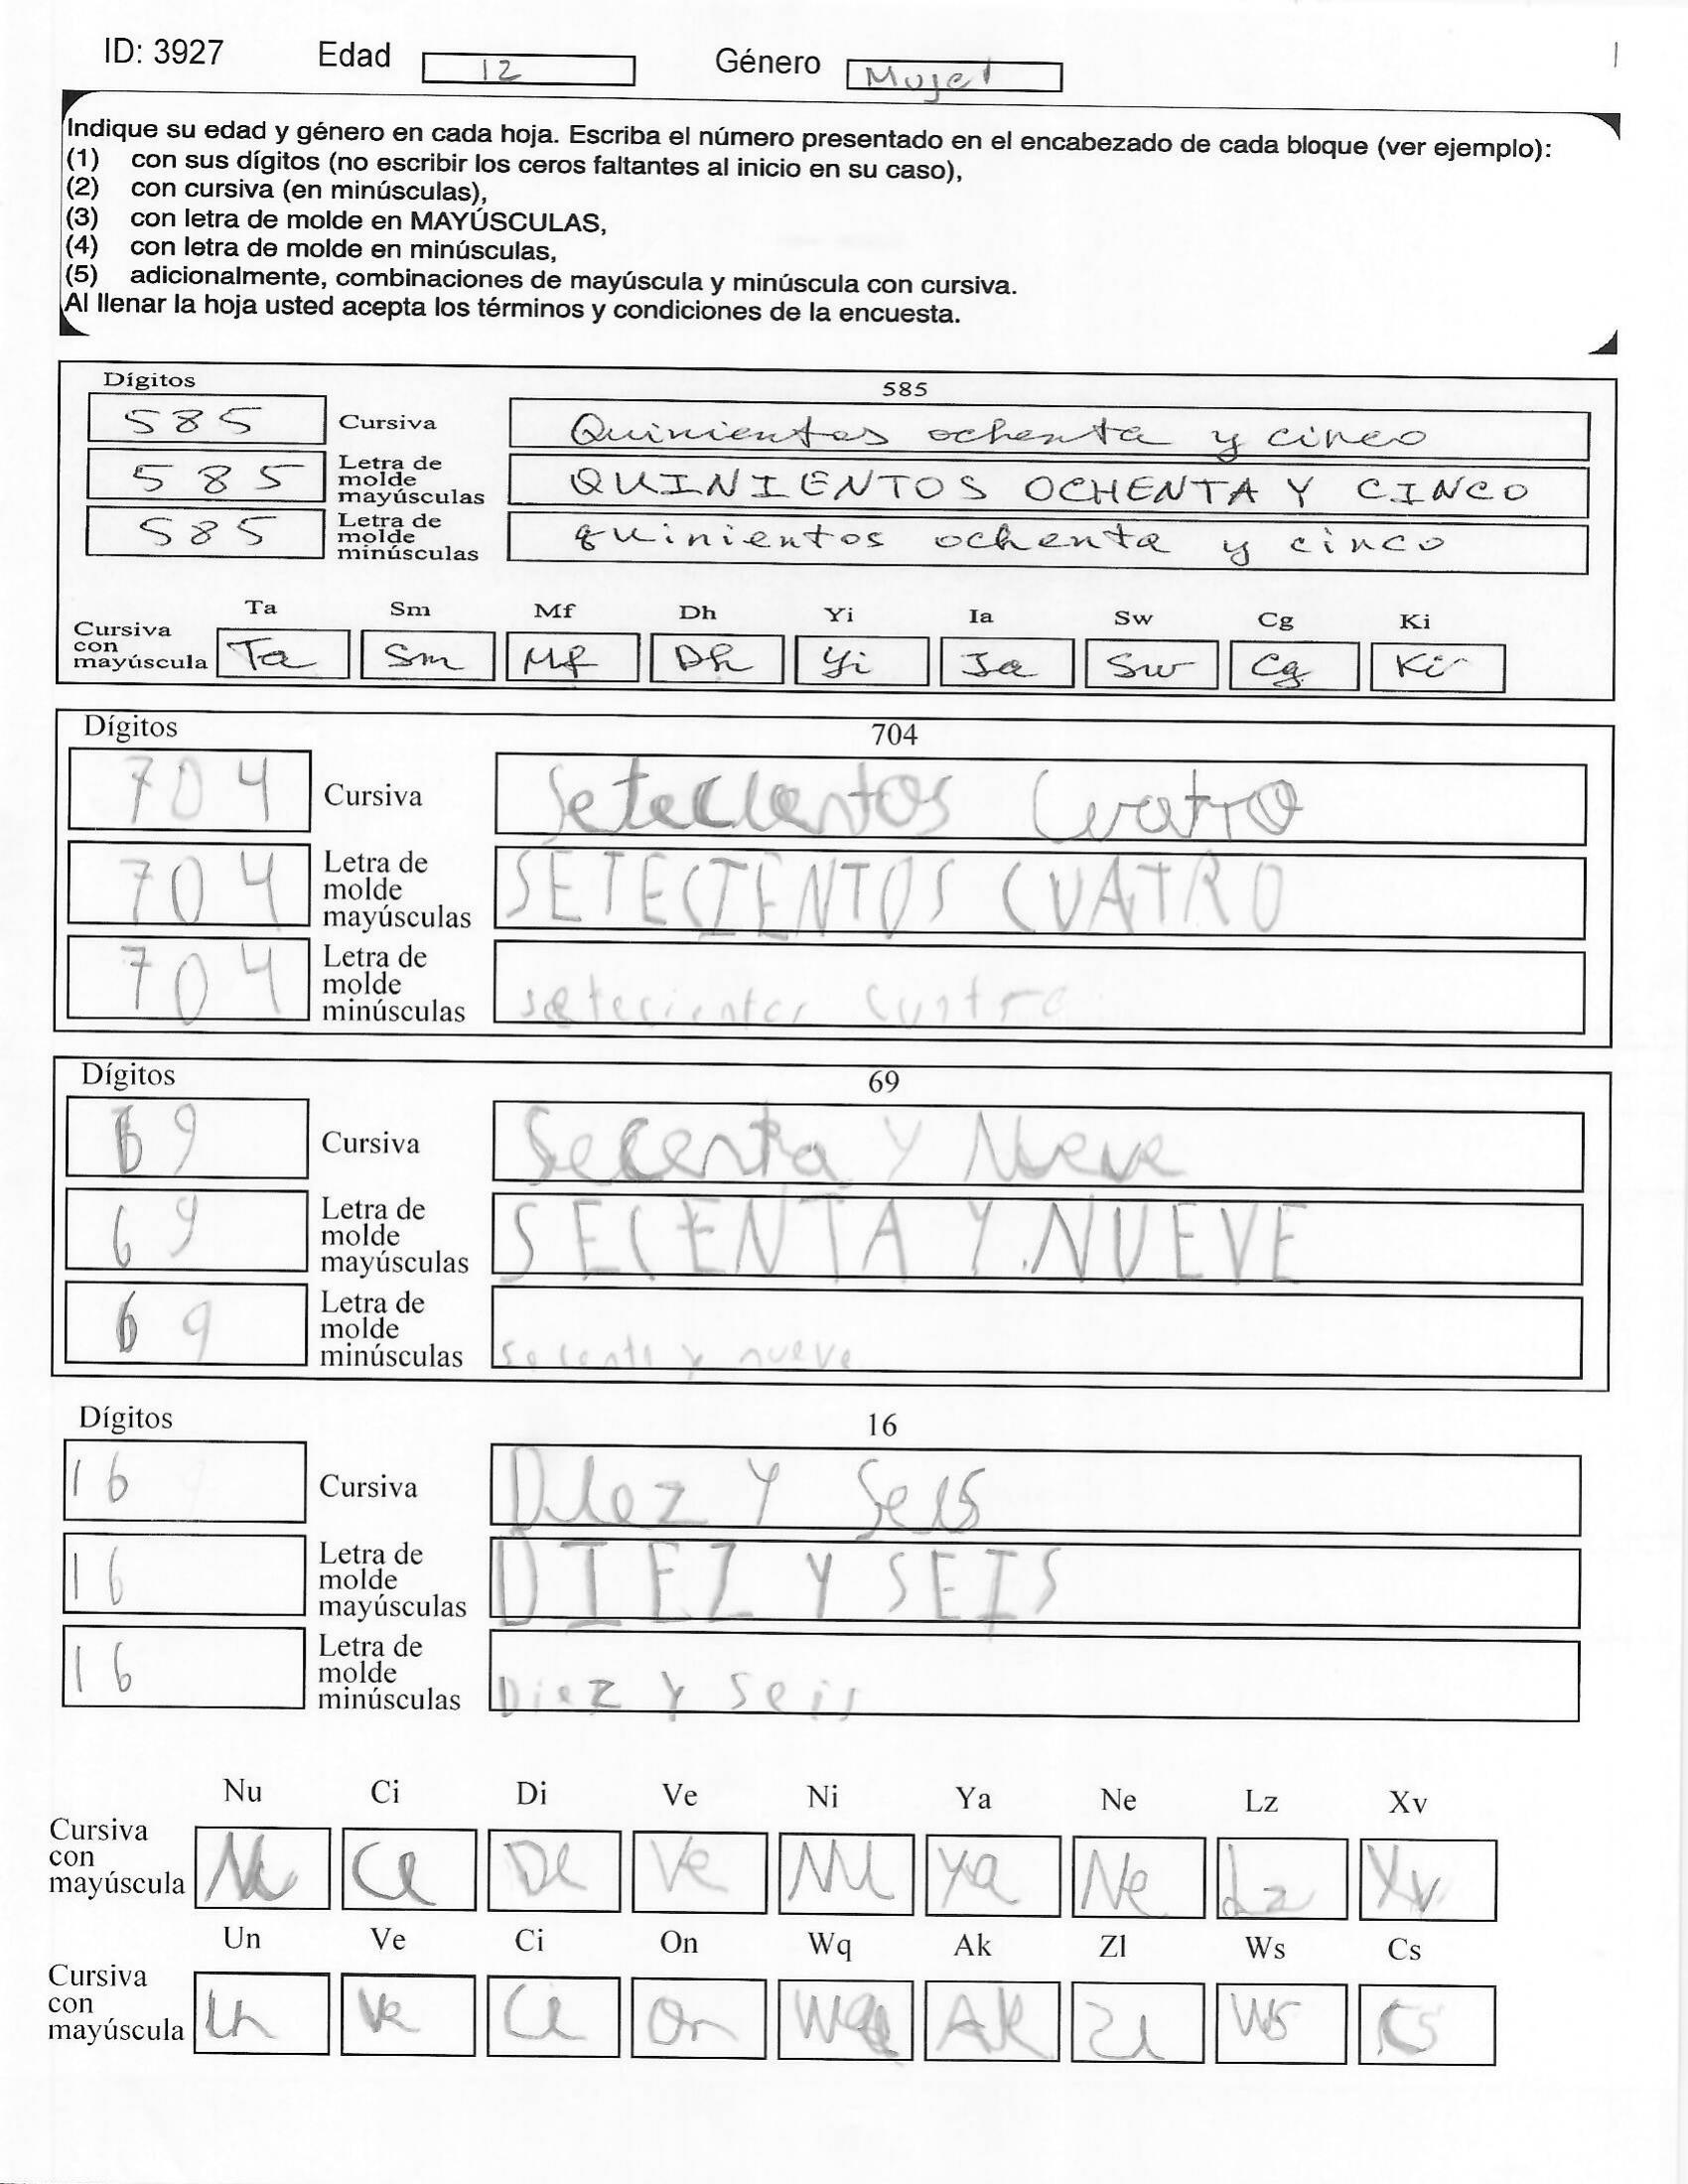 ID: 3927 Edad 12 Género Mujer
Indique su edad y género en cada hoja. Escriba el número presentado en el encabezado de cada bloque (ver ejemplo):
(1) con sus dígitos (no escribir los ceros faltantes al inicio en su caso),
(2) con cursiva (en minúsculas),
(3) con letra de molde en MAYÚSCULAS,
(4) con letra de molde en minúsculas,
(5) adicionalmente, combinaciones de mayúscula y minúscula con cursiva.
Al llenar la hoja usted acepta los términos y condiciones de la encuesta.
Dígitos 585
585 Cursiva Quinientos ochenta y cinco
585 Letra de molde mayúsculas QUINIENTOS OCHENTA Y CINCO
585 Letra de molde minúsculas quinientos ochenta y cinco
Ta Sm Mf Dh Yi Ia Sw Cg Ki
Cursiva con mayúscula Ta Sm Mf Dh Yi Ia Sw Cg Ki
Dígitos 704
704 Cursiva Setecientos Cuatro
704 Letra de molde mayúsculas SETECIENTOS CUATRO
704 Letra de molde minúsculas setecientos cuatro
Dígitos 69
69 Cursiva Secenta y Nueve
69 Letra de molde mayúsculas SECENTA Y NUEVE
69 Letra de molde minúsculas secenta y nueve
Dígitos 16
16 Cursiva Diez Y Seis
16 Letra de molde mayúsculas DIEZ Y SEIS
16 Letra de molde minúsculas Diez Y seis
Nu Ci Di Ve Ni Ya Ne Lz Xv
Cursiva con mayúscula Nu Ci Di Ve Ni Ya Ne Lz Xv
Un Ve Ci On Wq Ak Zl Ws Cs
Cursiva con mayúscula Un Ve Ci On Wq Ak Zl Ws Cs